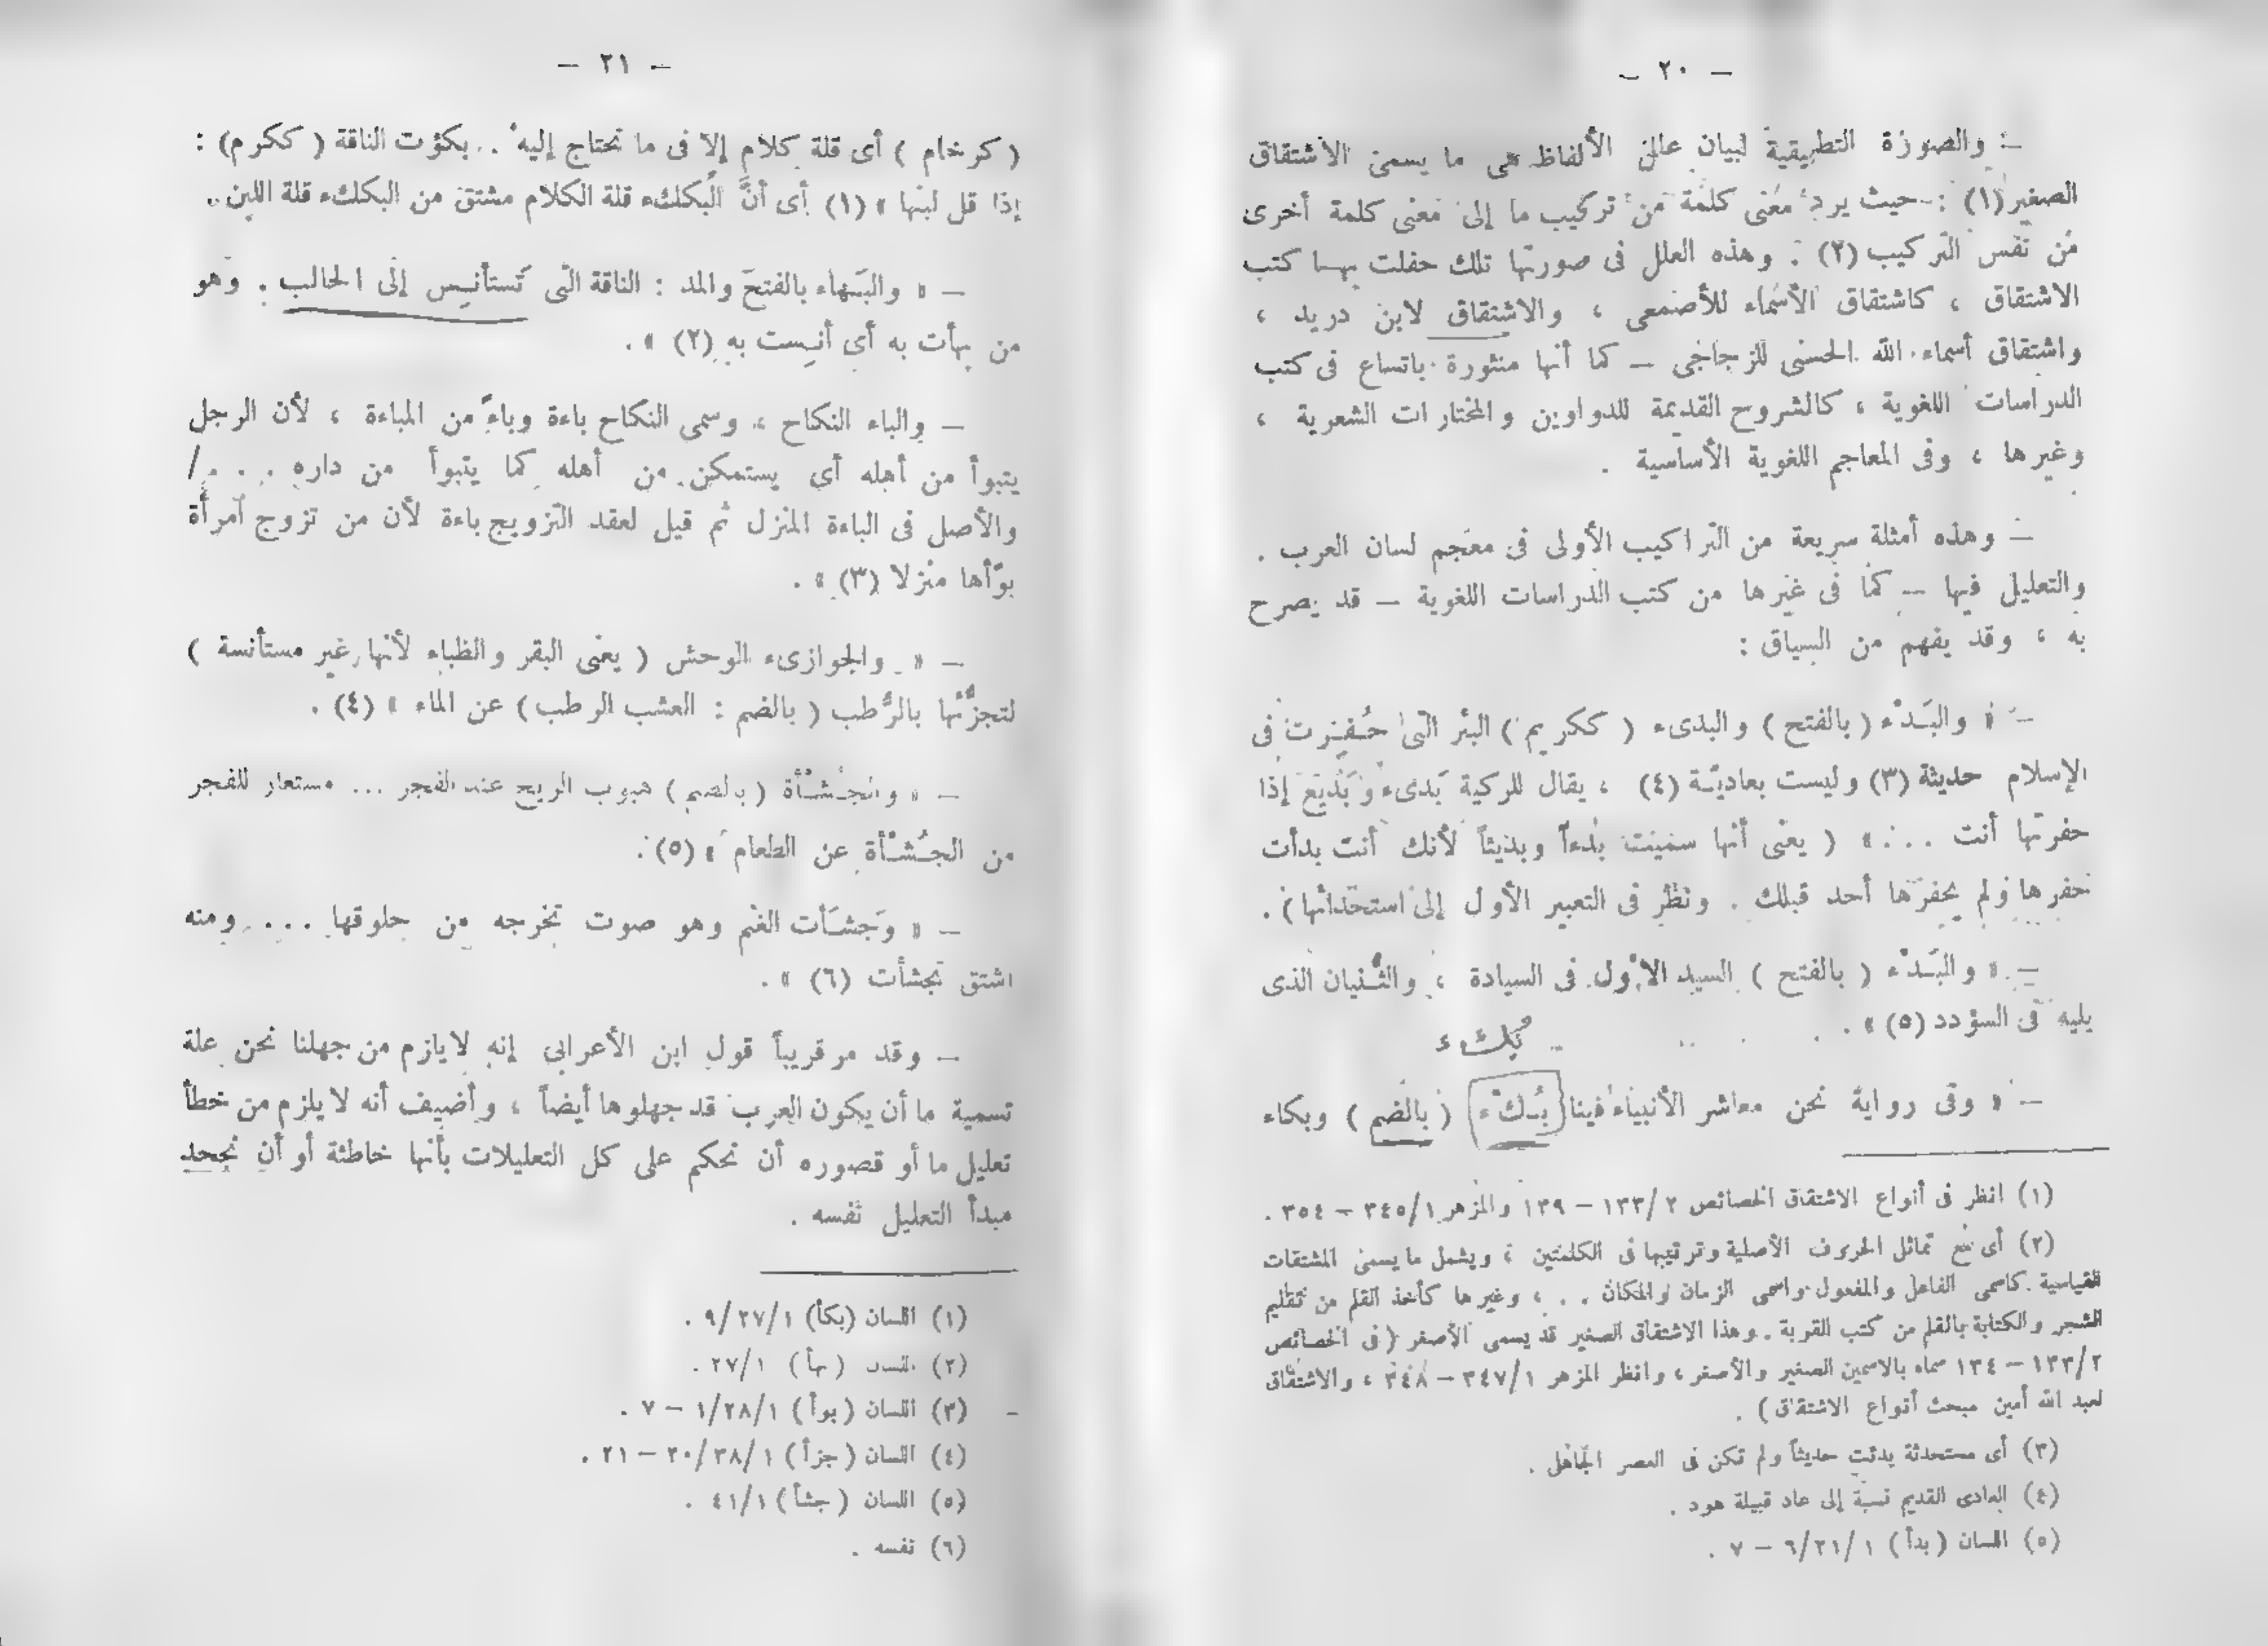 — ٢٠ —
— والصورة التطبيقية لبيان علل الألفاظ هى ما يسمى الاشتقاق
الصغير (١) : حيث يرد معنى كلمة من تركيب ما إلى معنى كلمة أخرى
من نفس التركيب (٢) . وهذه العلل فى صورتها تلك حفلت بها كتب
الاشتقاق ، كاشتقاق الأسماء للأصمعى ، والاشتقاق لابن دريد ،
واشتقاق أسماء الله الحسنى للزجاجى — كما أنها منثورة باتساع فى كتب
الدراسات اللغوية ، كالشروح القديمة للدواوين والمختارات الشعرية ،
وغيرها ، وفى المعاجم اللغوية الأساسية .
— وهذه أمثلة سريعة من التراكيب الأولى فى معجم لسان العرب .
والتعليل فيها — كما فى غيرها من كتب الدراسات اللغوية — قد يصرح
به ، وقد يفهم من السياق :
— « والبَدْء ( بالفتح ) والبدىء ( ككريم ) البئر التى حُفِرت فى
الإسلام حديثة (٣) وليست بعاديّة (٤) ، يقال للركية بَدىء وبَدِيع إذا
حفرتها أنت ... » ( يعنى أنها سميت بدءاً وبديئاً لأنك أنت بدأت
حفرها ولم يحفرها أحد قبلك . ونظر فى التعبير الأول إلى استحداثها ) .
— « والبَدْء ( بالفتح ) السيد الأول فى السيادة ، والثُّنيان الذى
يليه فى السؤدد (٥) » .
بُكْء
— « وفى رواية نحن معاشر الأنبياء فينا بُكْء ( بالضم ) وبكاء
(١) انظر فى أنواع الاشتقاق الخصائص ١٣٣/٢ — ١٣٩ والمزهر ٣٤٥/١ — ٣٥٤ .
(٢) أى مع تماثل الحروف الأصلية وترتيبها فى الكلمتين ، ويشمل ما يسمى المشتقات
القياسية كاسمى الفاعل والمفعول واسمى الزمان والمكان .. ، وغيرها كأخذ القلم من تقليم
الشجر والكتابة بالقلم من كتب القربة . وهذا الاشتقاق الصغير قد يسمى الأصغر ( فى الخصائص
١٣٣/٢ — ١٣٤ سماه بالاسمين الصغير والأصغر ، وانظر المزهر ٣٤٧/١ — ٣٤٨ ، والاشتقاق
لعبد الله أمين مبحث أنواع الاشتقاق ) .
(٣) أى مستحدثة بدئت حديثاً ولم تكن فى العصر الجاهلى .
(٤) العادى القديم نسبة إلى عاد قبيلة هود .
(٥) اللسان ( بدأ ) ٦/٢١/١ — ٧ .
— ٢١ —
( كرخام ) أى قلة كلام إلا فى ما نحتاج إليه .. بكؤت الناقة ( ككرم ) :
إذا قل لبنها » (١) أى أنَّ البُكْء قلة الكلام مشتق من البكء قلة اللبن .
— « والبَهاء بالفتح والمد : الناقة التى تستأنِس إلى الحالب . وهو
من بهأت به أى أنِست به (٢) » .
— والباء النكاح ، وسمى النكاح باءة وباءً من المباءة ، لأن الرجل
يتبوأ من أهله أى يستمكن من أهله كما يتبوأ من داره ... /
والأصل فى الباءة المنزل ثم قيل لعقد التزويج باءة لأن من تزوج امرأة
بوّأها منزلا (٣) » .
— « والجوازىء الوحش ( يعنى البقر والظباء لأنها غير مستأنسة )
لتجزُّئها بالرُّطب ( بالضم : العشب الرطب ) عن الماء » (٤) .
— « والجُشْأة ( بالضم ) هبوب الريح عند الفجر ... مستعار للفجر
من الجُشْأة عن الطعام » (٥) .
— « وَجشَأت الغنم وهو صوت تخرجه من حلوقها .... ومنه
اشتق تجشأت (٦) » .
— وقد مر قريباً قول ابن الأعرابى إنه لا يلزم من جهلنا نحن علة
تسمية ما أن يكون العرب قد جهلوها أيضاً ، وأضيف أنه لا يلزم من خطأ
تعليل ما أو قصوره أن نحكم على كل التعليلات بأنها خاطئة أو أن نجحد
مبدأ التعليل نفسه .
(١) اللسان (بكأ) ٩/٢٧/١ .
(٢) اللسان ( بهأ ) ٢٧/١ .
(٣) اللسان ( بوأ ) ١/٢٨/١ — ٧ .
(٤) اللسان ( جزأ ) ٢٠/٣٨/١ — ٢١ .
(٥) اللسان ( جشأ ) ٤١/١ .
(٦) نفسه .